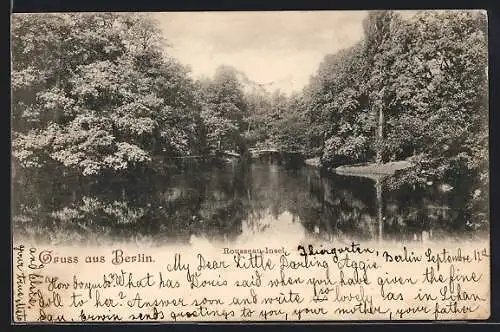 Gruss aus Berlin.
Rousseau-Insel.
Thiergarten, Berlin September
My Dear Little Darling Aggie
How do you do? What has Doris said when you have given the fine
doll to her? Answer soon and write so lovely as in
Erwin sends greetings to you, your mother, your father
and your